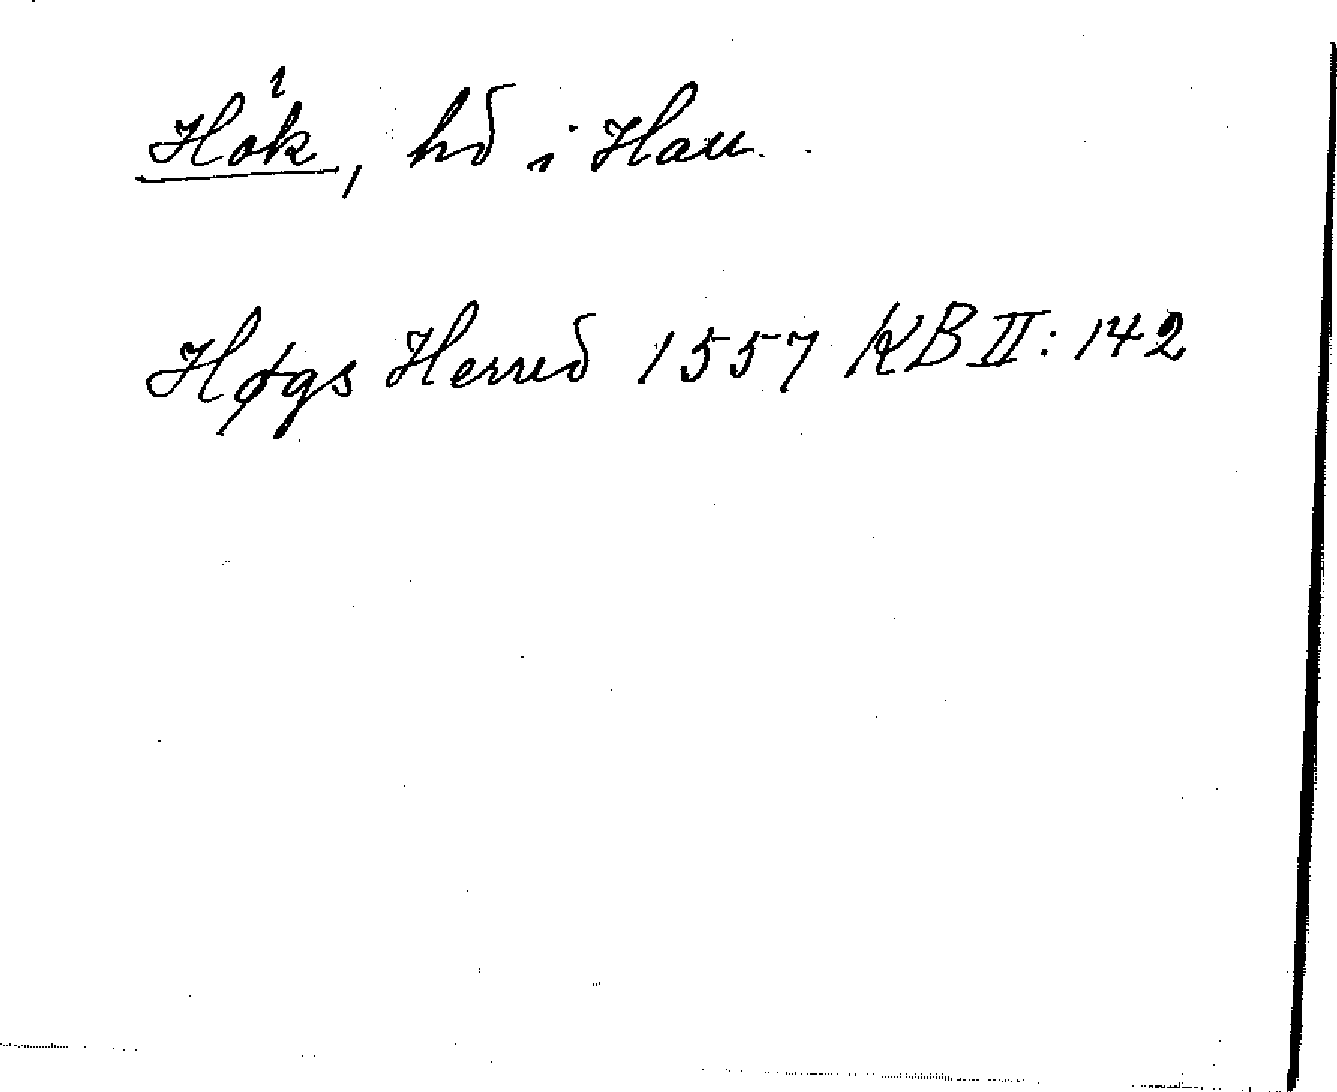 Hök, hd i Hall.
Høgs Herred 1557 KB II: 142